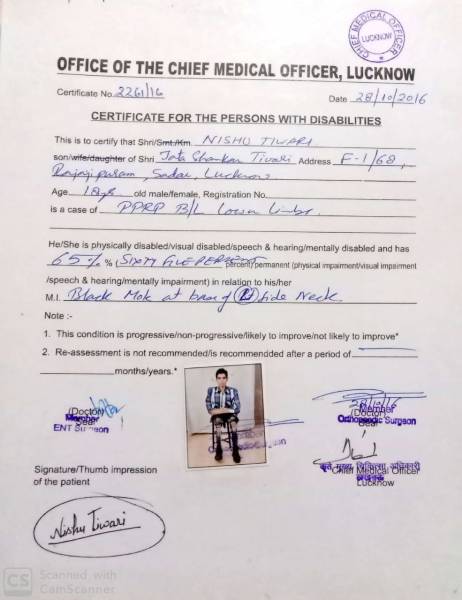 CHIEF MEDICAL OFFICER
LUCKNOW
OFFICE OF THE CHIEF MEDICAL OFFICER, LUCKNOW
Certificate No. 2261/16
Date 28/10/2016
CERTIFICATE FOR THE PERSONS WITH DISABILITIES
This is to certify that Shri/Smt./Km. NISHU TIWARI
son/wife/daughter of Shri Jata Shankar Tiwari Address F-1/68,
Rajajipuram, Sadar, Lucknow
Age 18 yrs old male/female, Registration No.
is a case of PPRP B/L Lower Limbs
He/She is physically disabled/visual disabled/speech & hearing/mentally disabled and has
65% % (SIXTY FIVE PERCENT percent) permanent (physical impairment/visual impairment
/speech & hearing/mentally impairment) in relation to his/her
M.I. Black Mole at base of (L) side Neck.
Note :-
1. This condition is progressive/non-progressive/likely to improve/not likely to improve*
2. Re-assessment is not recommended/is recommendded after a period of
months/years.*
(Doctor)
Member
Seal
ENT Surgeon
28/10/16
Member
(Doctor)
Seal
Orthopaedic Surgeon
कृते मुख्य चिकित्सा अधिकारी
Chief Medical Officer
लखनऊ
Lucknow
Signature/Thumb impression
of the patient
Nishu Tiwari
CS Scanned with
CamScanner